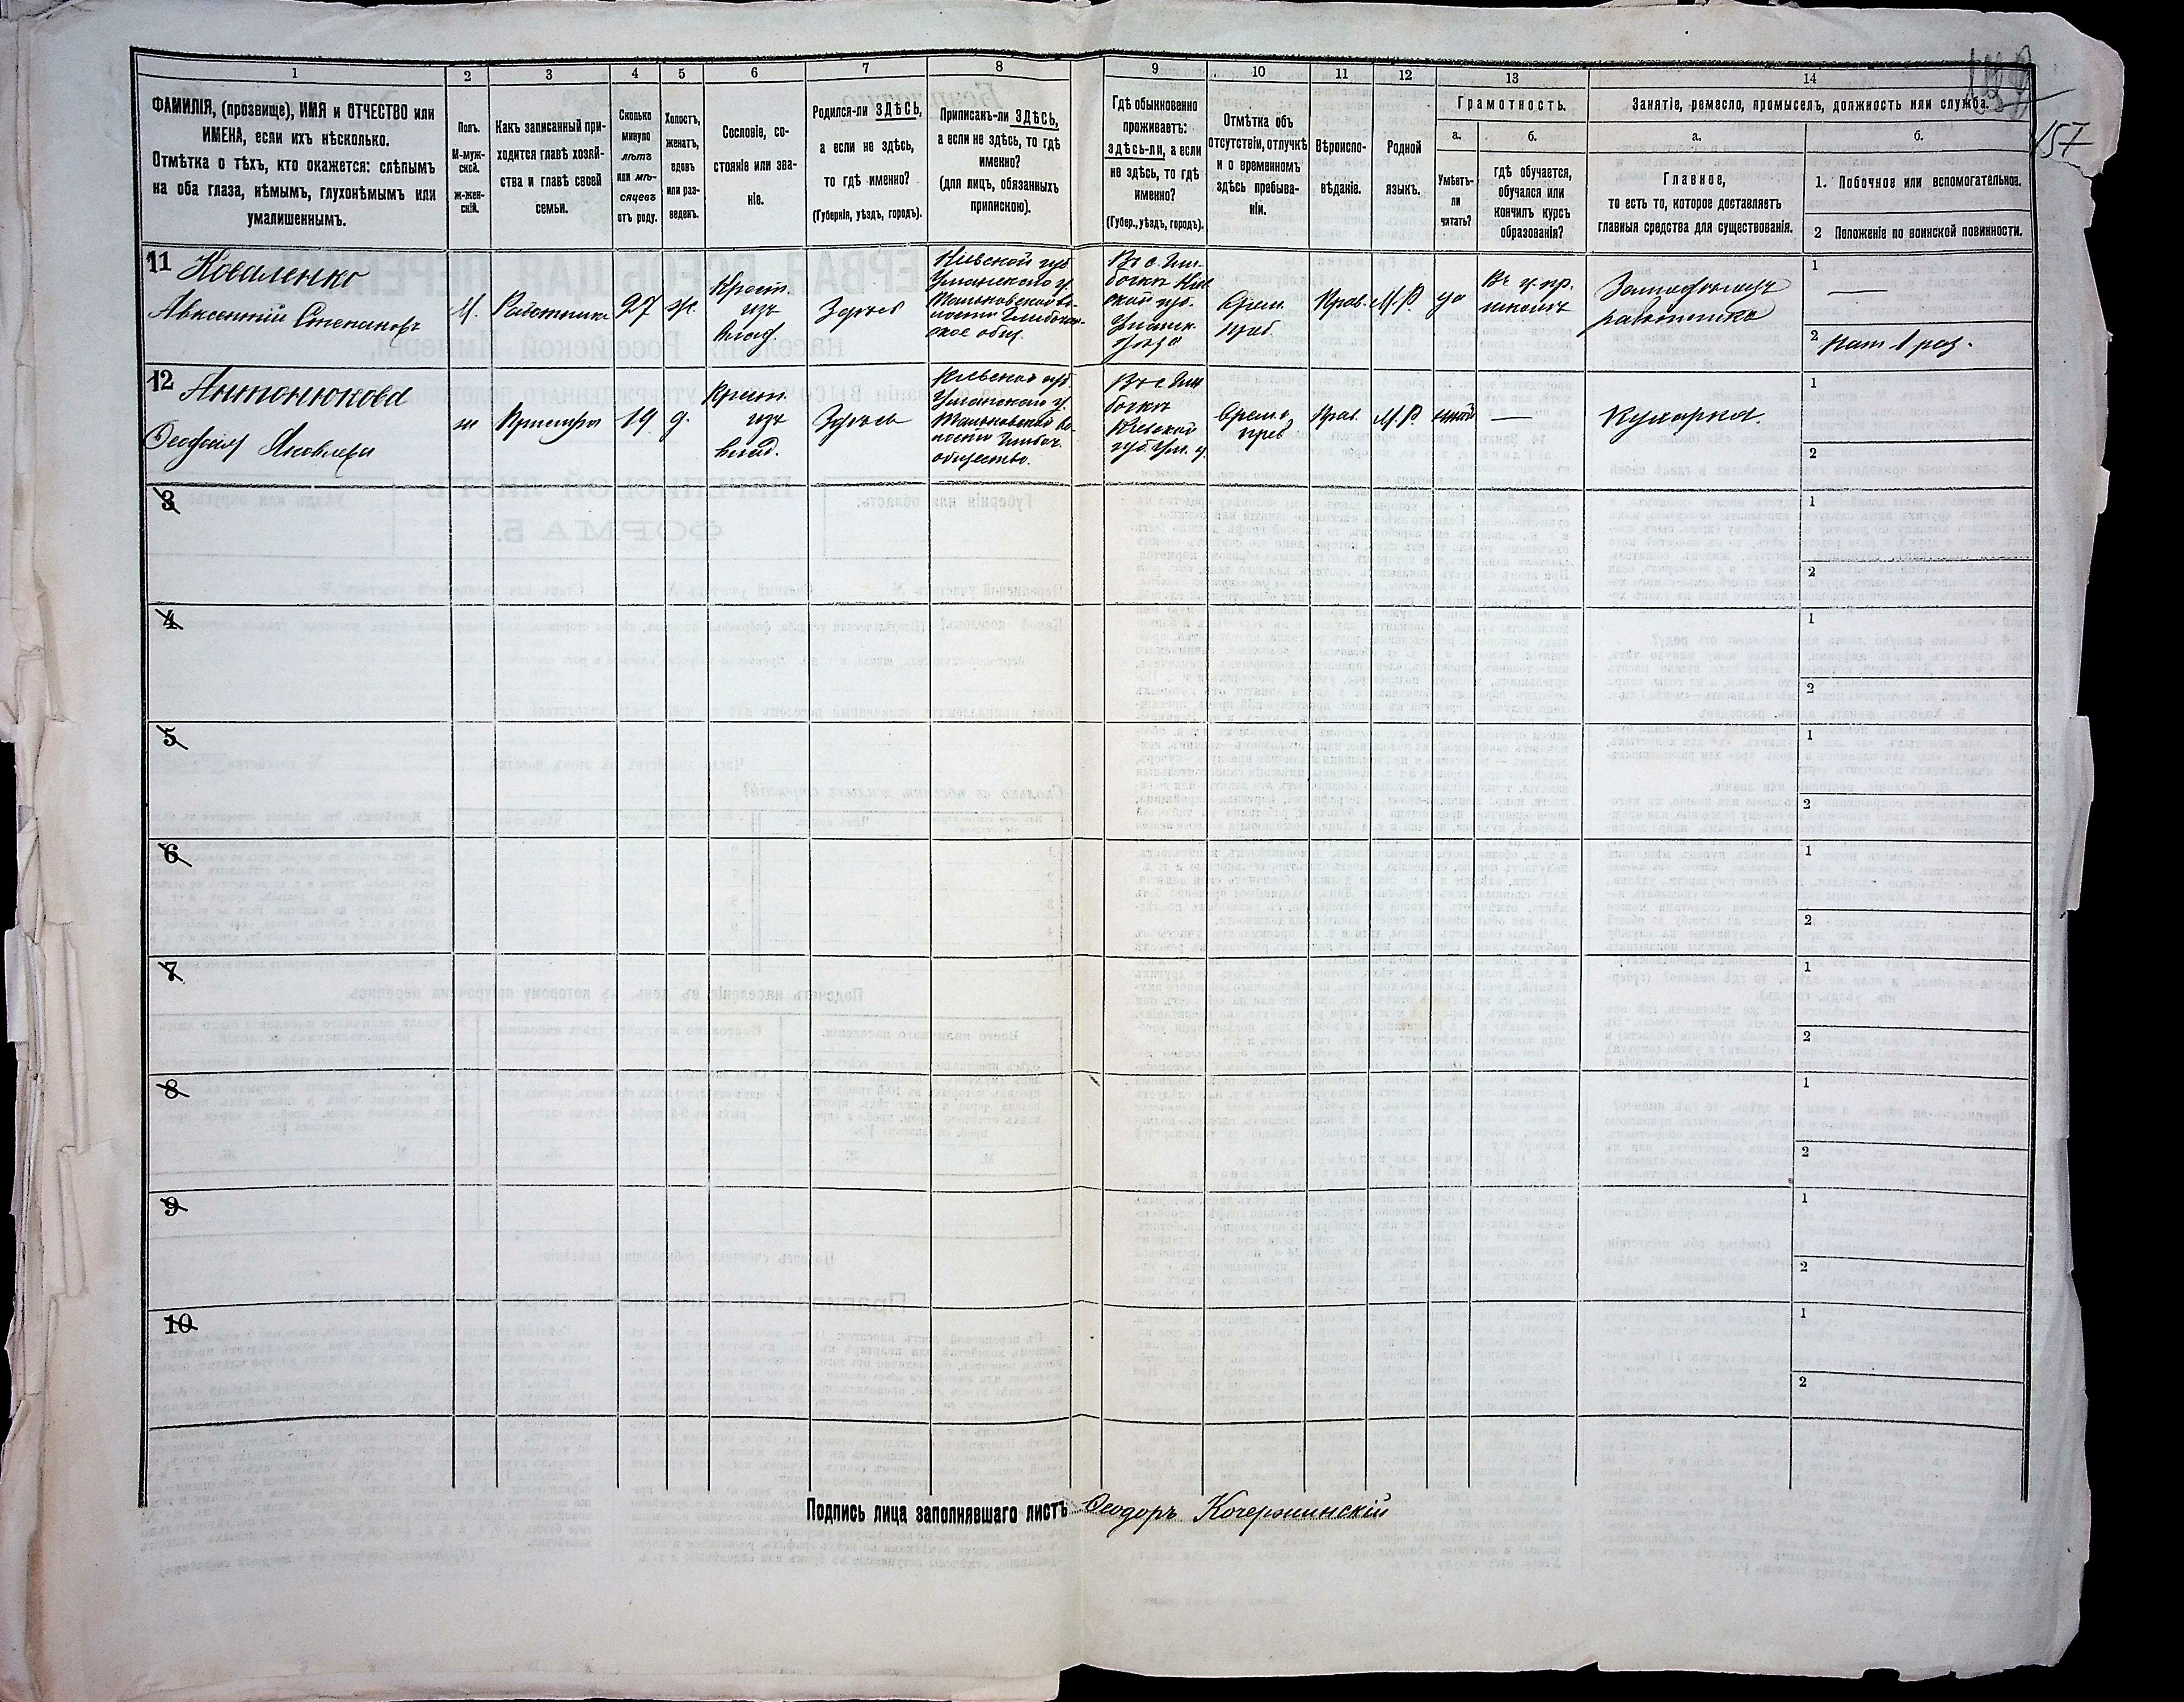 157
1
2
3
4
5
6
7
8
9
10
11
12
13
14
ФАМИЛІЯ, (прозвище), ИМЯ и ОТЧЕСТВО или
ИМЕНА, если ихъ нѣсколько.
Отмѣтка о тѣхъ, кто окажется: слѣпымъ
на оба глаза, нѣмымъ, глухонѣмымъ или
умалишеннымъ.
Полъ.
М-муж-
ской.
ж-жен-
скій.
Какъ записанный при-
ходится главѣ хозяй-
ства и главѣ своей
семьи.
Сколько
минуло
лѣтъ
или мѣ-
сяцевъ
отъ роду.
Холостъ,
женатъ,
вдовъ
или раз-
веденъ.
Сословіе, со-
стояніе или зва-
ніе.
Родился-ли ЗДѢСЬ,
а если не здѣсь,
то гдѣ именно?
(Губернія, уѣздъ, городъ).
Приписанъ-ли ЗДѢСЬ,
а если не здѣсь, то гдѣ
именно?
(для лицъ, обязанныхъ
припискою).
Гдѣ обыкновенно
проживаетъ:
здѣсь-ли, а если
не здѣсь, то гдѣ
именно?
(Губер., уѣздъ, городъ).
Отмѣтка объ
отсутствіи, отлучкѣ
и о временномъ
здѣсь пребыва-
ніи.
Вѣроиспо-
вѣданіе.
Родной
языкъ.
Грамотность.
а.
Умѣетъ-
ли
читать?
б.
гдѣ обучается,
обучался или
кончилъ курсъ
образованія?
Занятіе, ремесло, промыселъ, должность или служба.
а.
Главное,
то есть то, которое доставляетъ
главныя средства для существованія.
б.
1. Побочное или вспомогательное.
2 Положеніе по воинской повинности.
11 Коваленко
Авксентій Степановъ
М.
Работникъ
27
ж.
Крест.
изъ
влад.
Здѣсь
Кіевской губ.
Уманскаго у.
Маньковской во-
лости
ское общ.
Въ с.
Кіев
ской губ.
Уманск.
уѣзда
Врем.
преб.
Прав.
М. Р.
да
Въ ц. пр.
школѣ
работника
1 —
2 1 раз.
12 Антонюкова
Яковлева
ж
Прислуга
19
д.
Крест.
изъ
влад.
Здѣсь
Кіевской губ.
Уманскаго у.
Маньковской во-
лости
общество.
Въ с.
Кіевской
губ. Ум. у.
Врем.
преб
Прав.
М. Р.
—
Кухарка.
1
2
3
1
2
4
1
2
5
1
2
6
1
2
7
1
2
8
1
2
9
1
2
10
1
2
Подпись лица заполнявшаго листъ Ѳеодоръ Кочержинскій